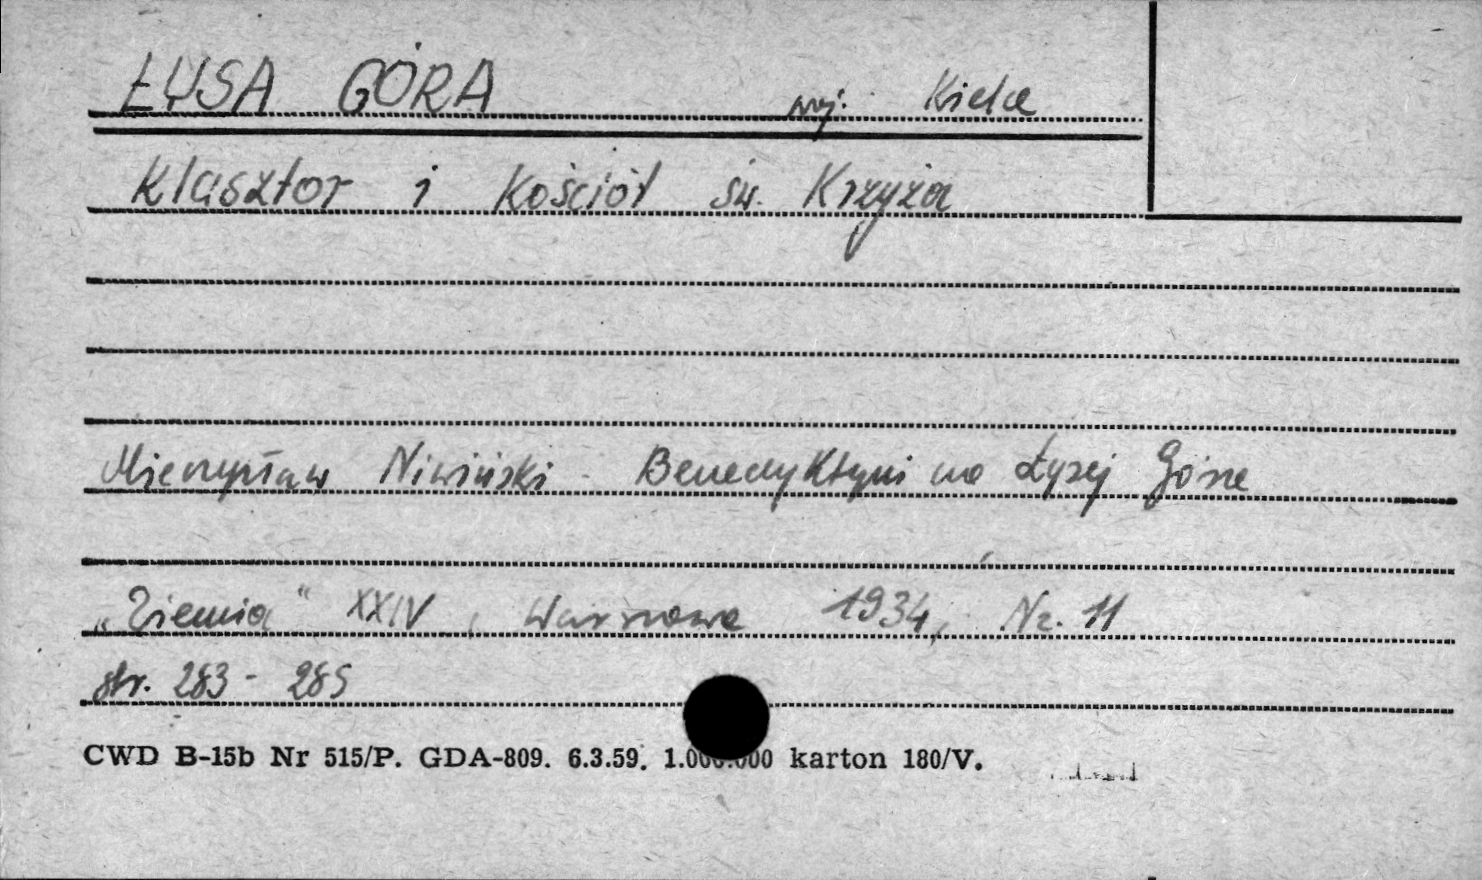 ŁYSA GÓRA woj. Kielce
Klasztor i Kościół św. Krzyża
Mieczysław Niwiński - Benedyktyni na Łysej Górze
„Ziemia" XXIV, Warszawa 1934, Nr. 11
str. 283 - 285
CWD B-15b Nr 515/P. GDA-809. 6.3.59. 1.000.000 karton 180/V.